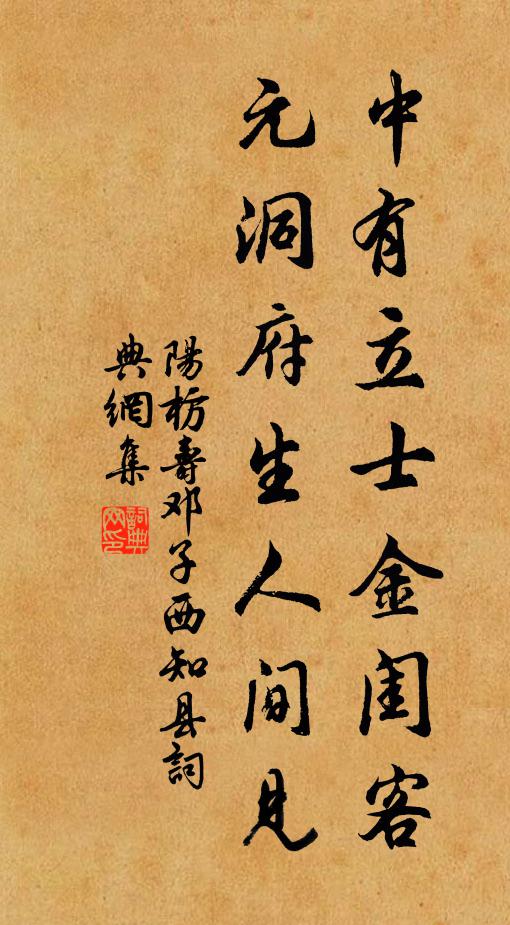 中有立士金闺客
元洞府生人间见
陽枋壽邓子西知县詞
典網集
詞典网印